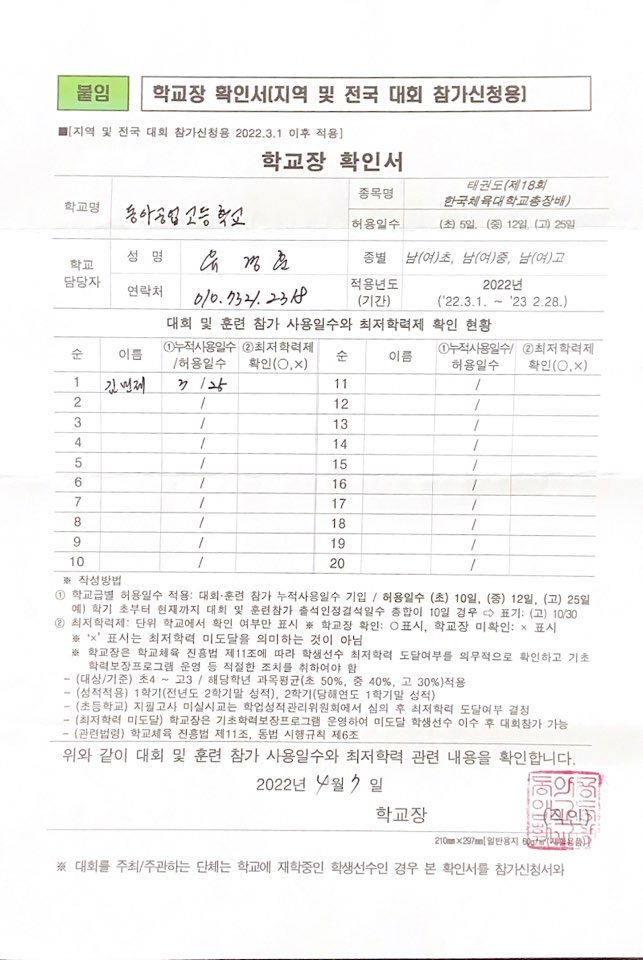 붙임
학교장 확인서[지역 및 전국 대회 참가신청용]
■[지역 및 전국 대회 참가신청용 2022.3.1 이후 적용]
학교장 확인서
학교명 동아공업고등학교 종목명 태권도(제18회 한국체육대학교총장배)
허용일수 (초) 5일, (중) 12일, (고) 25일
학교 담당자 성 명 유 경 훈 종별 남(여)초, 남(여)중, 남(여)고
연락처 010.7321.2318 적용년도 (기간) 2022년 ('22.3.1. ~ '23 2.28.)
대회 및 훈련 참가 사용일수와 최저학력제 확인 현황
순 이름 ①누적사용일수/허용일수 ②최저학력제 확인(○,×) 순 이름 ①누적사용일수/허용일수 ②최저학력제 확인(○,×)
1 김민제 3 / 25 11 /
2 / 12 /
3 / 13 /
4 / 14 /
5 / 15 /
6 / 16 /
7 / 17 /
8 / 18 /
9 / 19 /
10 / 20 /
※ 작성방법
① 학교급별 허용일수 적용: 대회·훈련 참가 누적사용일수 기입 / 허용일수 (초) 10일, (중) 12일, (고) 25일
예) 학기 초부터 현재까지 대회 및 훈련참가 출석인정결석일수 총합이 10일 경우 ⇨ 표기: (고) 10/30
② 최저학력제: 단위 학교에서 확인 여부만 표시 ※ 학교장 확인: ○표시, 학교장 미확인: × 표시
※ '×' 표시는 최저학력 미도달을 의미하는 것이 아님
※ 학교장은 학교체육 진흥법 제11조에 따라 학생선수 최저학력 도달여부를 의무적으로 확인하고 기초
학력보장프로그램 운영 등 적절한 조치를 취하여야 함
- (대상/기준) 초4 ~ 고3 / 해당학년 과목평균(초 50%, 중 40%, 고 30%)적용
- (성적적용) 1학기(전년도 2학기말 성적), 2학기(당해연도 1학기말 성적)
- (초등학교) 지필고사 미실시교는 학업성적관리위원회에서 심의 후 최저학력 도달여부 결정
- (최저학력 미도달) 학교장은 기초학력보장프로그램 운영하여 미도달 학생선수 이수 후 대회참가 가능
- (관련법령) 학교체육 진흥법 제11조, 동법 시행규칙 제6조
위와 같이 대회 및 훈련 참가 사용일수와 최저학력 관련 내용을 확인합니다.
2022년 4월 7일
학교장 (직인)
210㎜×297㎜[일반용지 60g/㎡(재활용품)]
※ 대회를 주최/주관하는 단체는 학교에 재학중인 학생선수인 경우 본 확인서를 참가신청서와